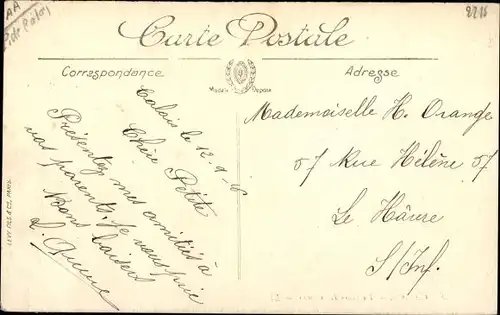 AA
2215
Carte Postale
Correspondance
Modèle Déposé
Adresse
Calais le 12-9-16
Chère Petite
Présentez mes amitiés à
vos parents. Je vous prie
Bons baisers
Mademoiselle H. Orange
57 Rue Hélène 57
Le Hâvre
S/Inf.
LEVY FILS & CIE, PARIS